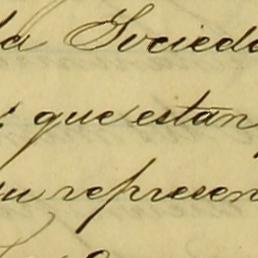 la Socieda
que estan
su represen